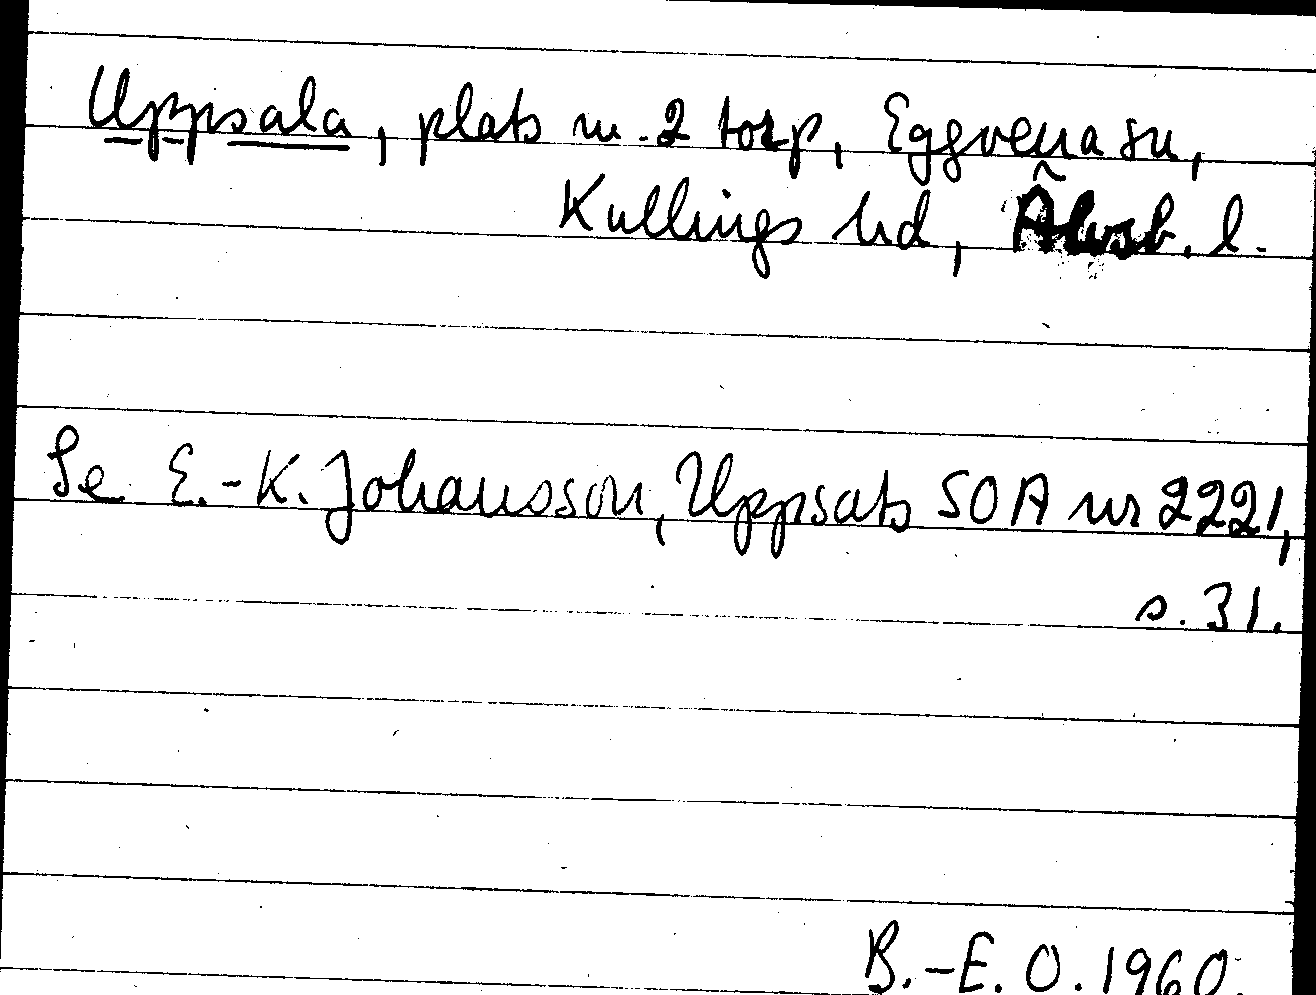 Uppsala, plats m. 2 torp, Eggvena sn,
Kullings hd, Älvsb. l.
Se E.-K. Johansson, Uppsats SOA nr 2221,
s. 31.
B.-E. O. 1960.